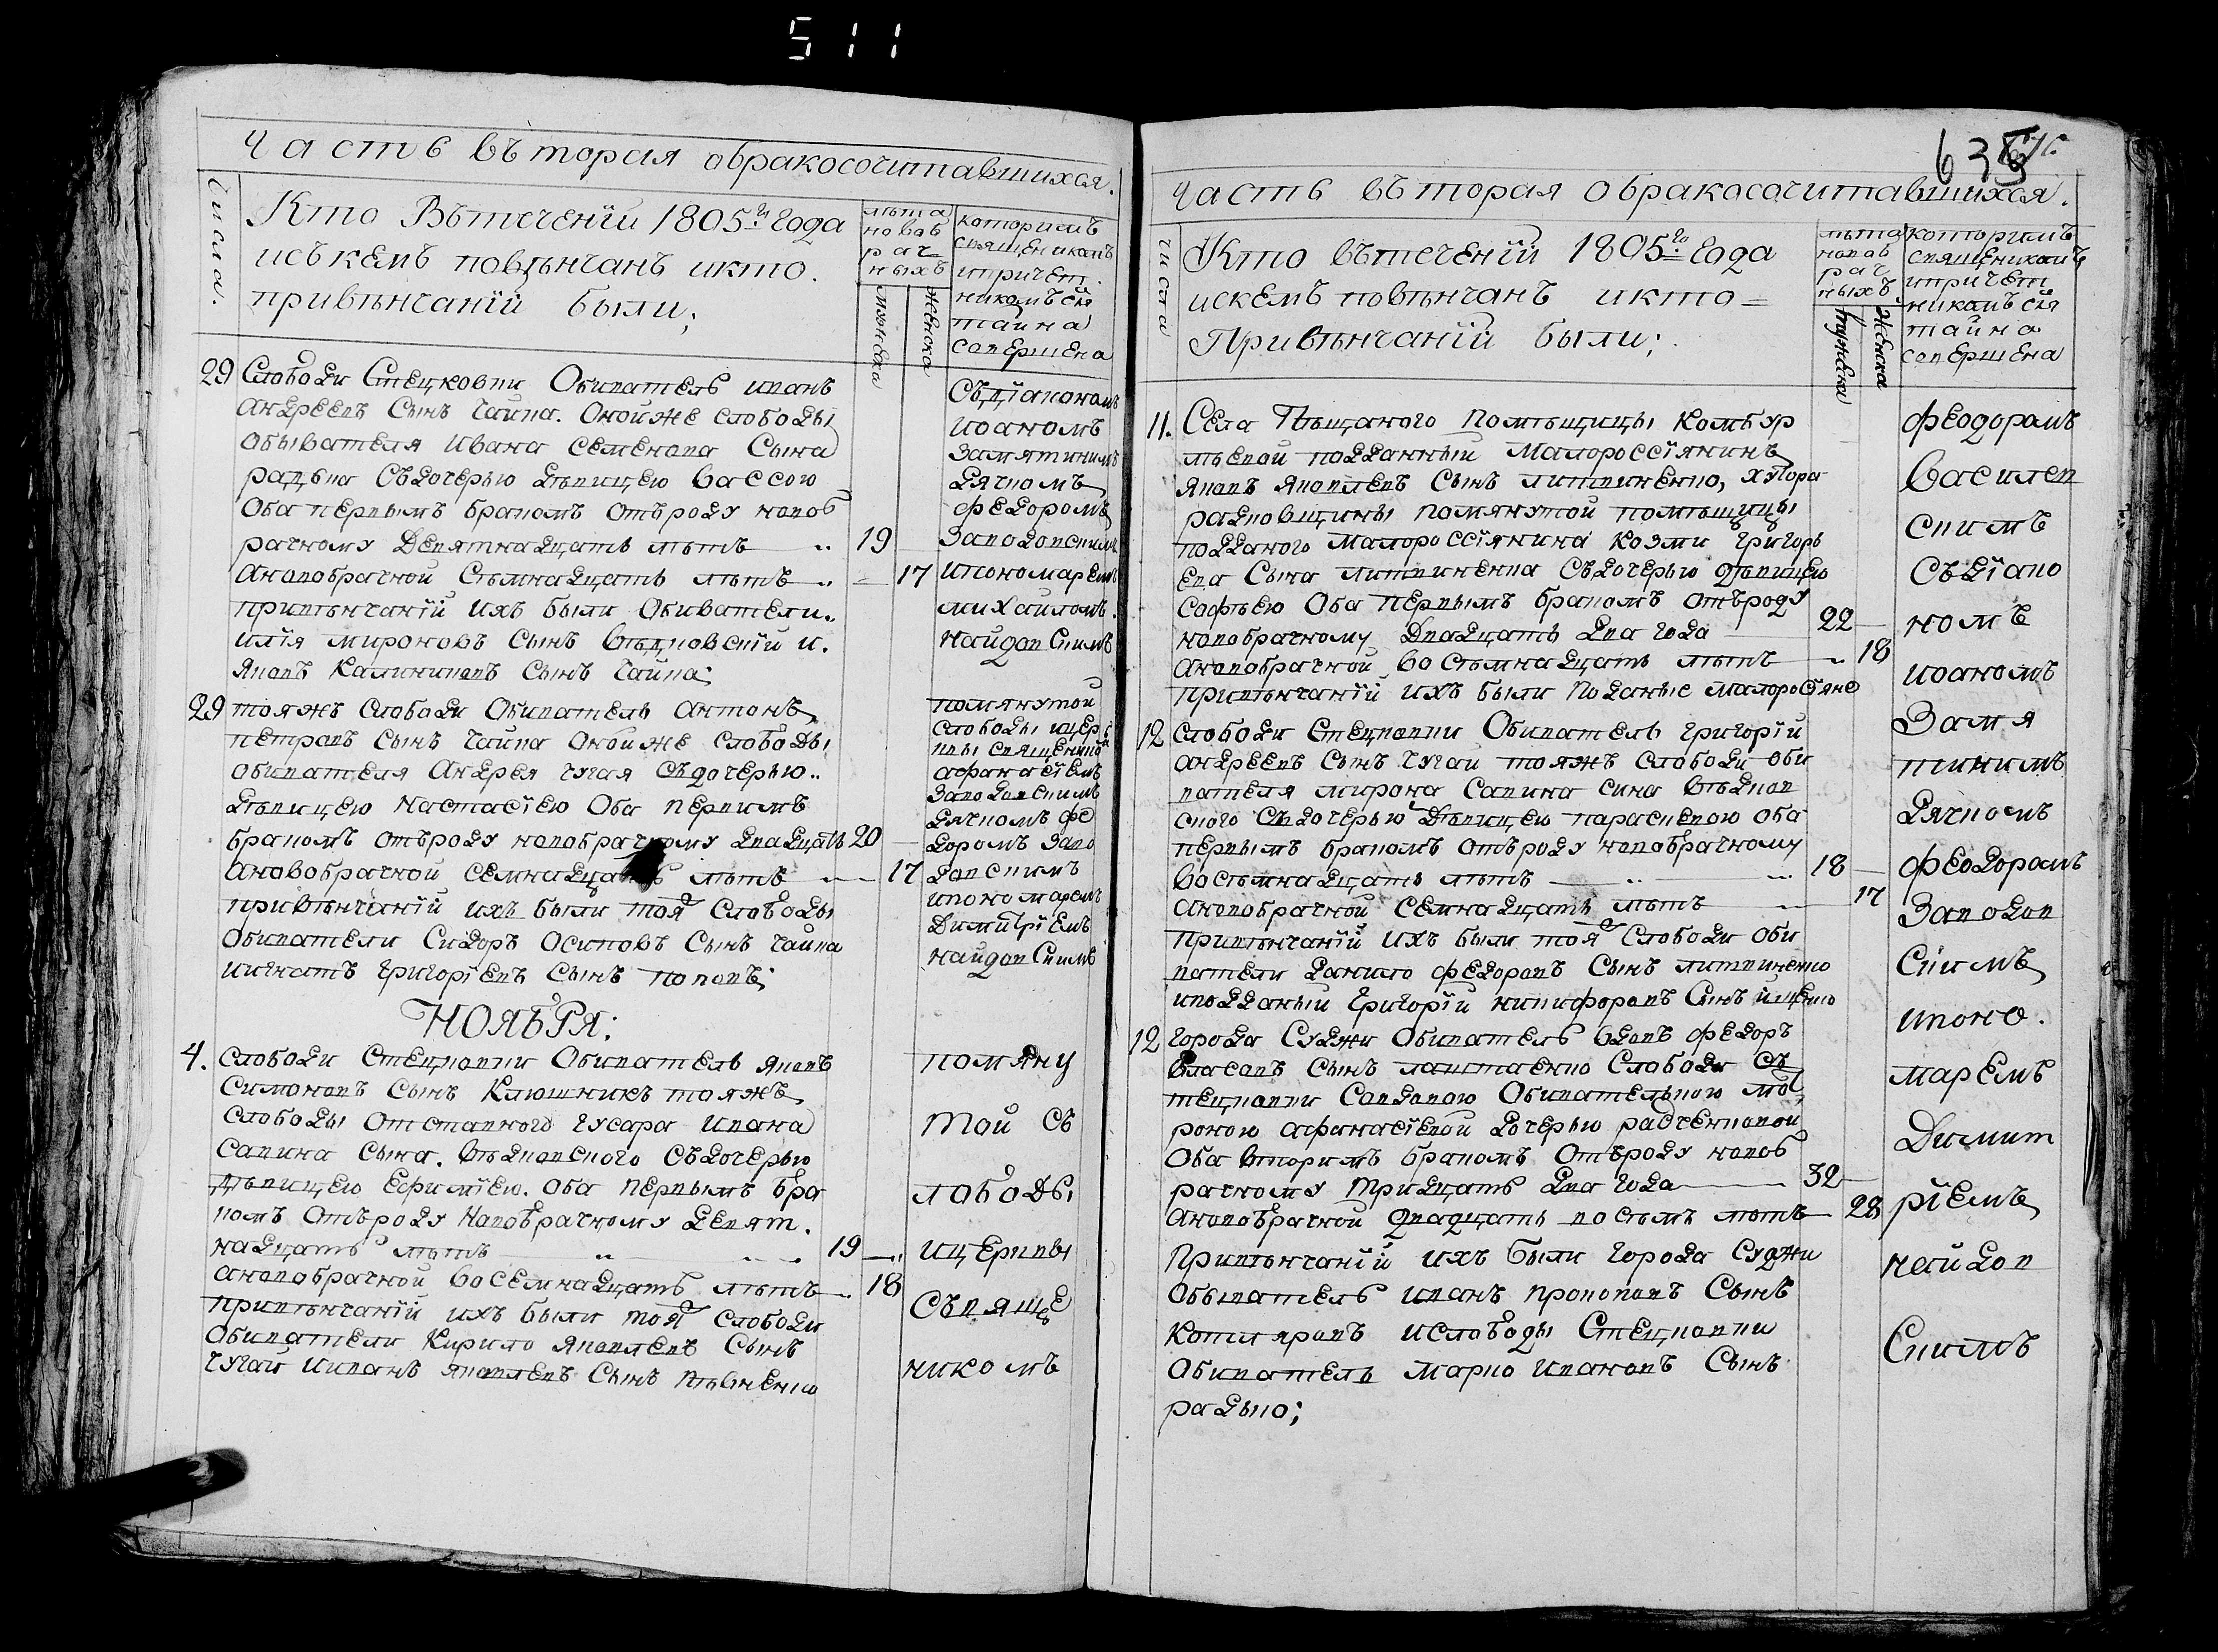 511
Часть вътораꙗ обракосочитавшихся.
Числа.
Кто Вътеченїи 1805го года
исъкемъ повѣнчанъ икто.
привѣнчанїй были;
лѣта
новоб
рач
ныхъ
мужеска
женска
которимъ
священикомъ
ипричет
никомъ сїя
тайна
совершена
29 Слободи Стецковки Обиватель иванъ
андреевъ Сынъ Чайка. Оной же слободы
обывателя ивана семенова Сына
радька Съдочерью дѣвицею вассою
Оба первымъ бракомъ отъроду новоб
рачному Девятнадцать лѣтъ 19
ановобрачной Сѣмнадцать лѣтъ 17
привѣнчанїй ихъ были Обиватели
илїя мироновъ сынъ Вѣдковскїй и.
яковъ Калиниковъ сынъ Чайка;
Съдїакономъ
иоаномъ
Замятинимъ
дячкомъ
Федоромъ
Заводовскимъ
ипономаремъ
михайломъ.
найдовскимъ
29 тояжъ Слободи Обиватель антонъ
петровъ сынъ Чайка Оной же Слободы
обивателя андрея чугая Съдочерью
дѣвицею настасїею Оба первимъ
бракомъ отъроду новобрачному двадцать 20
ановобрачной семнадцать лѣтъ 17
привѣнчанїй ихъ были тоя Слободы
Обиватели Сидоръ осиповъ сынъ Чайка
иигнатъ григорїевъ сынъ поповъ;
помянутой
слободы ицер
кви священикомъ
афанасїемъ
Заводовскимъ
дячкомъ фе
доромъ Заво
довскимъ
ипономаремъ
Димитрїемъ
найдовскимъ
НОЯБРЯ;
4. Слободи Стецковки Обиватель яковъ
Симоновъ сынъ Ключникъ тояжъ
слободы отставного гусара ивана
савина сына. Вѣдковского Съдочерью
дѣвицею Ефимїею. Оба первымъ бра
комъ отъроду Новобрачному девят.
надцать лѣтъ 19
ановобрачной восемнадцать лѣтъ 18
привѣнчанїй ихъ были тоя слободи
Обиватели Кирило яковлевъ сынъ
Чугай иисанъ яковлевъ сынъ
помяну
той съ
лободы
ицеркви
съвяще
никомъ
Часть въторая обракосочитавшихся.
числа
Кто вътеченїи 1805го года
искемъ повѣнчанъ икто
Привѣнчанїй были;
лѣта
новоб
рач
ныхъ
мужска
женска
которимъ
священикомъ
ипричет
никомъ сїя
тайна
совершена
11. Села Пѣщаного Помѣщицы Комбур
лѣевой подданный Малороссїянинъ
яковъ яковлевъ сынъ литвиненко, хутора
радковщины помянутой помѣщицы
подданого малороссїянина козми григорь
ева сына литвиненка Съдочерью дѣвицею
Софьею Оба первымъ бракомъ отъроду
новобрачному двадцать два года 22
ановобрачной восѣмнадцать лѣтъ 18
привѣнчанїй ихъ были поданые малоросїяне
12 слободи Стецковки Обиватель григорїй
андреевъ сынъ чугай тояжъ слободи оби
вателя мирона савина сина вѣдков
ского Съдочерью дѣвицею параскевою оба
первымъ бракомъ отъроду новобрачному
восѣмнадцать лѣтъ 18
ановобрачной семнадцать лѣтъ 17
привѣнчанїй ихъ были тоя слободи оби
ватели данило федоровъ сынъ литвиненко
иподданый григорїй никифоровъ сынъ
12 города Суджи Обиватель вдовъ федоръ
власовъ сынъ слободи съ
тецковки совдовою Обивательною
роною афанасїевой дочерью радченковой
Оба вторимъ бракомъ отъроду новоб
рачному тридцать два года 32
ановобрачной двадцать восѣмъ лѣтъ 28
Привѣнчанїй ихъ были города Суджи
обыватель иванъ прокоповъ сынъ
котляровъ ислободы Стецковки
Обиватель марко ивановъ сынъ
радько;
феодоромъ
василев
скимъ
съдїако
номъ
иоаномъ
Замя
тинимъ
дячкомъ
феодоромъ
Заводов
скимъ
ипоно.
маремъ
Димит
рїемъ
найдов
скимъ